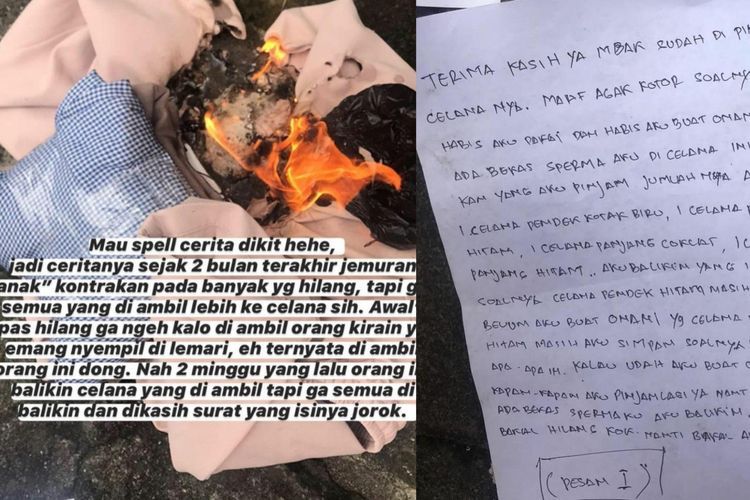 Mau spell cerita dikit hehe,
jadi ceritanya sejak 2 bulan terakhir jemuran
anak" kontrakan pada banyak yg hilang, tapi g
semua yang di ambil lebih ke celana sih. Awal
pas hilang ga ngeh kalo di ambil orang kirain y
emang nyempil di lemari, eh ternyata di ambil
orang ini dong. Nah 2 minggu yang lalu orang i
balikin celana yang di ambil tapi ga semua di
balikin dan dikasih surat yang isinya jorok.
TERIMA KASIH YA MBAK SUDAH DI PI
CELANA NYA. MAAF AGAK KOTOR SOALNY
HABIS AKU PAKAI DAN HABIS AKU BUAT ONAN
ADA BEKAS SPERMA AKU DI CELANA INI
KAN YANG AKU PINJAM JUMLAH NYA A
1 CELANA PENDEK KOTAK BIRU, 1 CELANA
HITAM, 1 CELANA PANJANG COKLAT, 1 C
PANJANG HITAM.. AKU BALIKIN YANG
SOALNYA CELANA PENDEK HITAM MASIH
BELUM AKU BUAT ONANI YG CELANA
HITAM MASIH AKU SIMPAN SOALNYA
APA-APA IN. KALAU UDAH AKU BUAT
KAPAN-KAPAN AKU PINJAM LAGI YA NANT
ADA BEKAS SPERMAKU AKU BALIKIN.
BAKAL HILANG KOK. NANTI BAKAL A
(PESAN I)